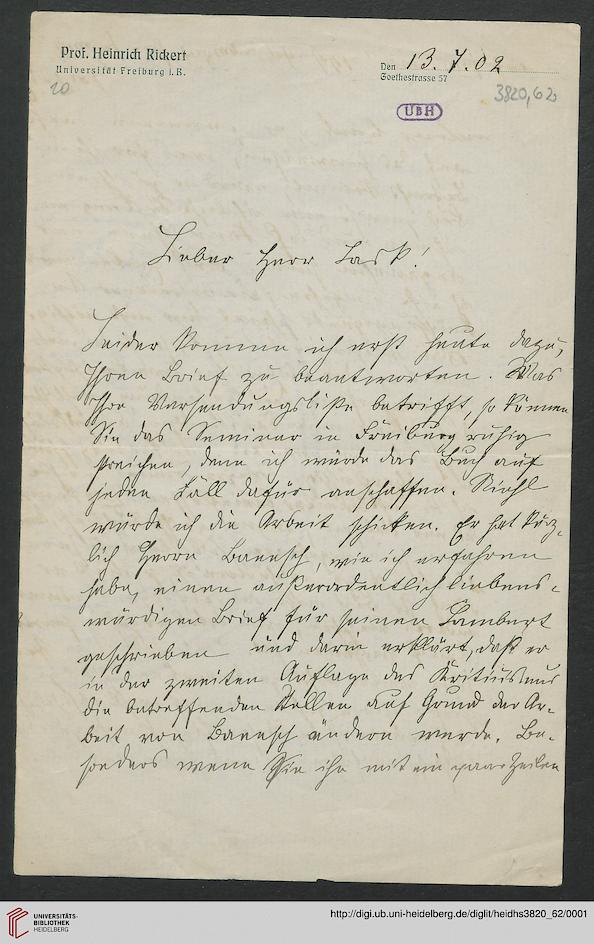 Prof. Heinrich Rickert
Universität Freiburg i. B.
Den 13. 7. 02
Goethestrasse 57
20
3820,62
UBH
Lieber Herr Lask!
Leider komme ich erst heute dazu,
Ihren Brief zu beantworten. Was
Ihre Versendungsliste betrifft, so können
Sie das Seminar in Freiburg ruhig
streichen, denn ich würde das Buch auf
jeden Fall dafür anschaffen. Riehl
würde ich die Arbeit schicken. Er hat kürz-
lich Herrn Baensch, wie ich erfahren
habe, einen außerordentlich liebens-
würdigen Brief für seinen Lambert
geschrieben und darin erklärt, daß er
in der zweiten Auflage des Kritizismus
die betreffenden Stellen auf Grund der Ar-
beit von Baensch ändern werde. Be-
sonders wenn Sie ihn mit ein paar Zeilen
UNIVERSITÄTS-
BIBLIOTHEK
HEIDELBERG
http://digi.ub.uni-heidelberg.de/diglit/heidhs3820_62/0001